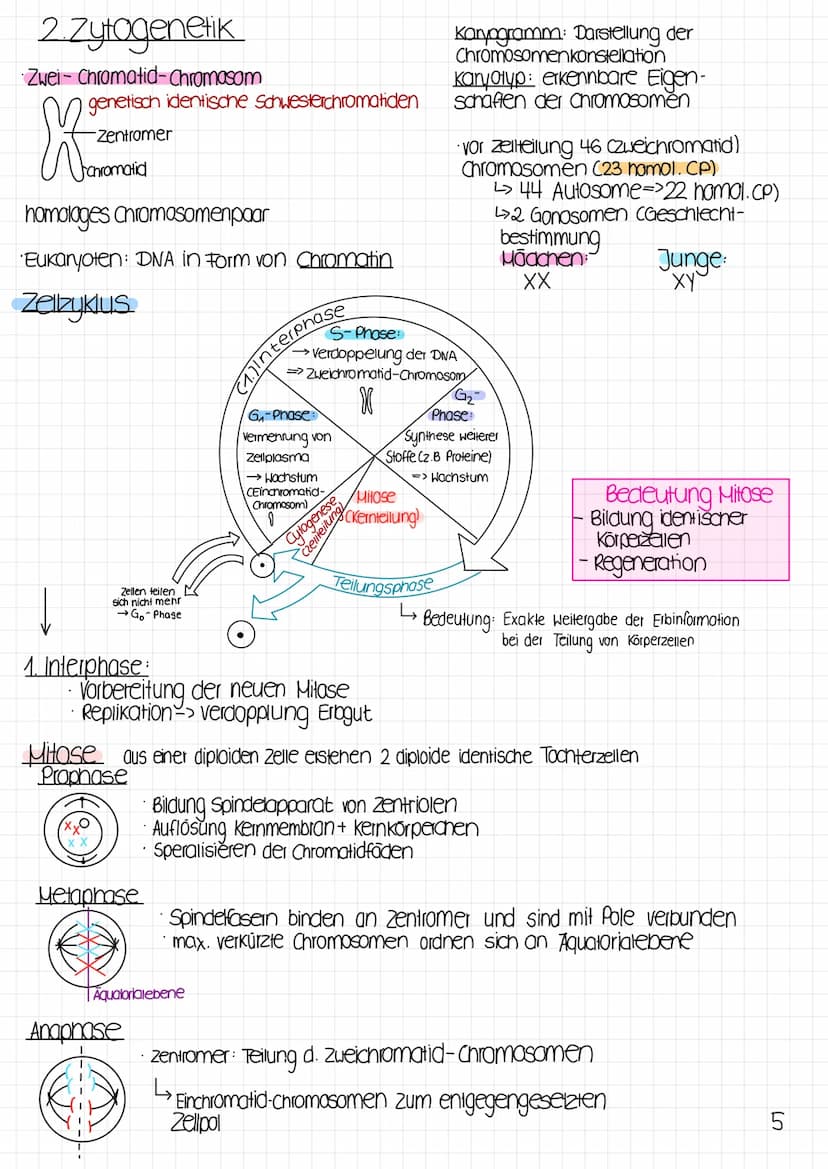 2. Zytogenetik
· Zwei-Chromatid-Chromosom
genetisch identische Schwesterchromatiden
Zentromer
Chromatid
homologes Chromosomenpaar
· Eukaryoten: DNA in Form von Chromatin
Karyogramm: Darstellung der
Chromosomenkonstellation
Karyotyp: erkennbare Eigen-
schaften der Chromosomen
· vor Zellteilung 46 (zweichromatid)
Chromosomen (23 homol. CP)
↳ 44 Autosome=>22 homol. CP)
↳2 Gonosomen (Geschlecht-
bestimmung
Mädchen:
XX
Junge:
XY
Zellzyklus
(1.) Interphase
S-Phase:
→ Verdoppelung der DNA
=> Zweichromatid-Chromosom
G₁-Phase:
Vermehrung von
Zellplasma
→ Wachstum
(Einchromatid-
Chromosom)
G₂-
Phase:
Synthese weiterer
Stoffe (z.B Proteine)
=> Wachstum
Cytogenese
(Zellteilung)
Mitose
(Kernteilung)
Teilungsphase
Zellen teilen
sich nicht mehr
→ G₀-Phase
↳ Bedeutung: Exakte Weitergabe der Erbinformation
bei der Teilung von Körperzellen
Bedeutung Mitose
- Bildung identischer
Körperzellen
- Regeneration
1. Interphase:
· Vorbereitung der neuen Mitose
· Replikation -> Verdopplung Erbgut
Mitose aus einer diploiden Zelle erstehen 2 diploide identische Tochterzellen
Prophase
· Bildung Spindelapparat von Zentriolen
· Auflösung Kernmembran + Kernkörperchen
· Speralisieren der Chromatidfäden
Metaphase
· Spindelfasern binden an Zentromer und sind mit Pole verbunden
· max. verkürzte Chromosomen ordnen sich an Äquatorialebene
Äquatorialebene
Anaphase
· Zentromer: Teilung d. Zweichromatid-Chromosomen
↳ Einchromatid-Chromosomen zum entgegengesetzten
Zellpol
5